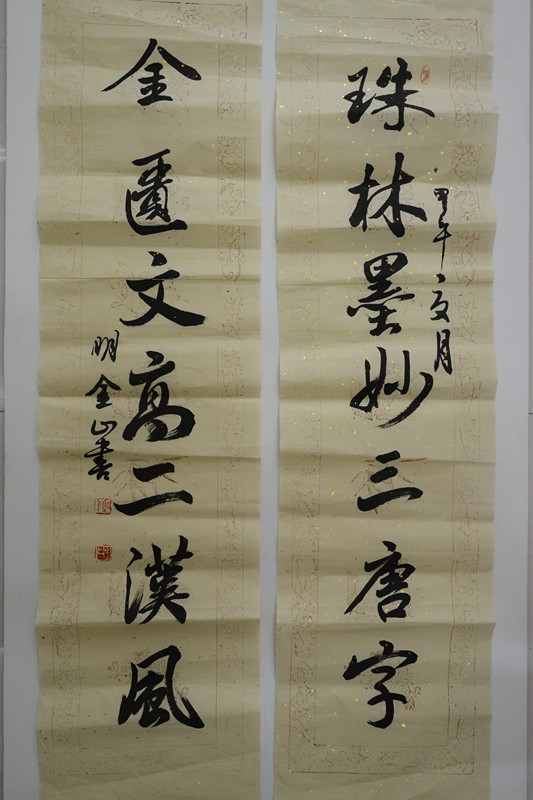 珠林墨妙三唐字
甲午夏月
金匱文高二漢風
明金山書